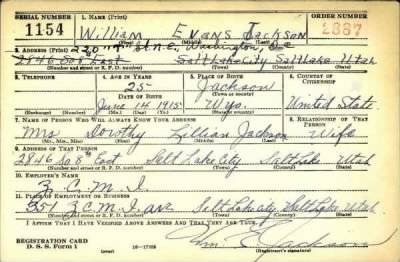 SERIAL NUMBER 1. NAME (Print) ORDER NUMBER
1154 William Evans Jackson 2887
(First) (Middle) (Last)
2. ADDRESS (Print) 220 St. N.E., Washington, D.C.
2846 So 8 East Salt Lake City Salt Lake Utah
(Number and street or R. F. D. number) (Town) (County) (State)
3. TELEPHONE 4. AGE IN YEARS 5. PLACE OF BIRTH 6. COUNTRY OF CITIZENSHIP
25 Jackson
DATE OF BIRTH (Town or county)
June 14 1915 Wyo. United States
(Exchange) (Number) (Mo.) (Day) (Yr.) (State or country)
7. NAME OF PERSON WHO WILL ALWAYS KNOW YOUR ADDRESS 8. RELATIONSHIP OF THAT PERSON
Mrs Dorothy Lillian Jackson Wife
(Mr., Mrs., Miss) (First) (Middle) (Last)
9. ADDRESS OF THAT PERSON
2846 So 8th East Salt Lake City Salt Lake Utah
(Number and street or R. F. D. number) (Town) (County) (State)
10. EMPLOYER'S NAME
Z.C.M.I.
11. PLACE OF EMPLOYMENT OR BUSINESS
351 Z.C.M.I ave Salt Lake City, Salt Lake, Utah
(Number and street or R. F. D. number) (Town) (County) (State)
I AFFIRM THAT I HAVE VERIFIED ABOVE ANSWERS AND THAT THEY ARE TRUE.
REGISTRATION CARD
D. S. S. Form 1 (over) 16—17105 Wm E Jackson
(Registrant's signature)